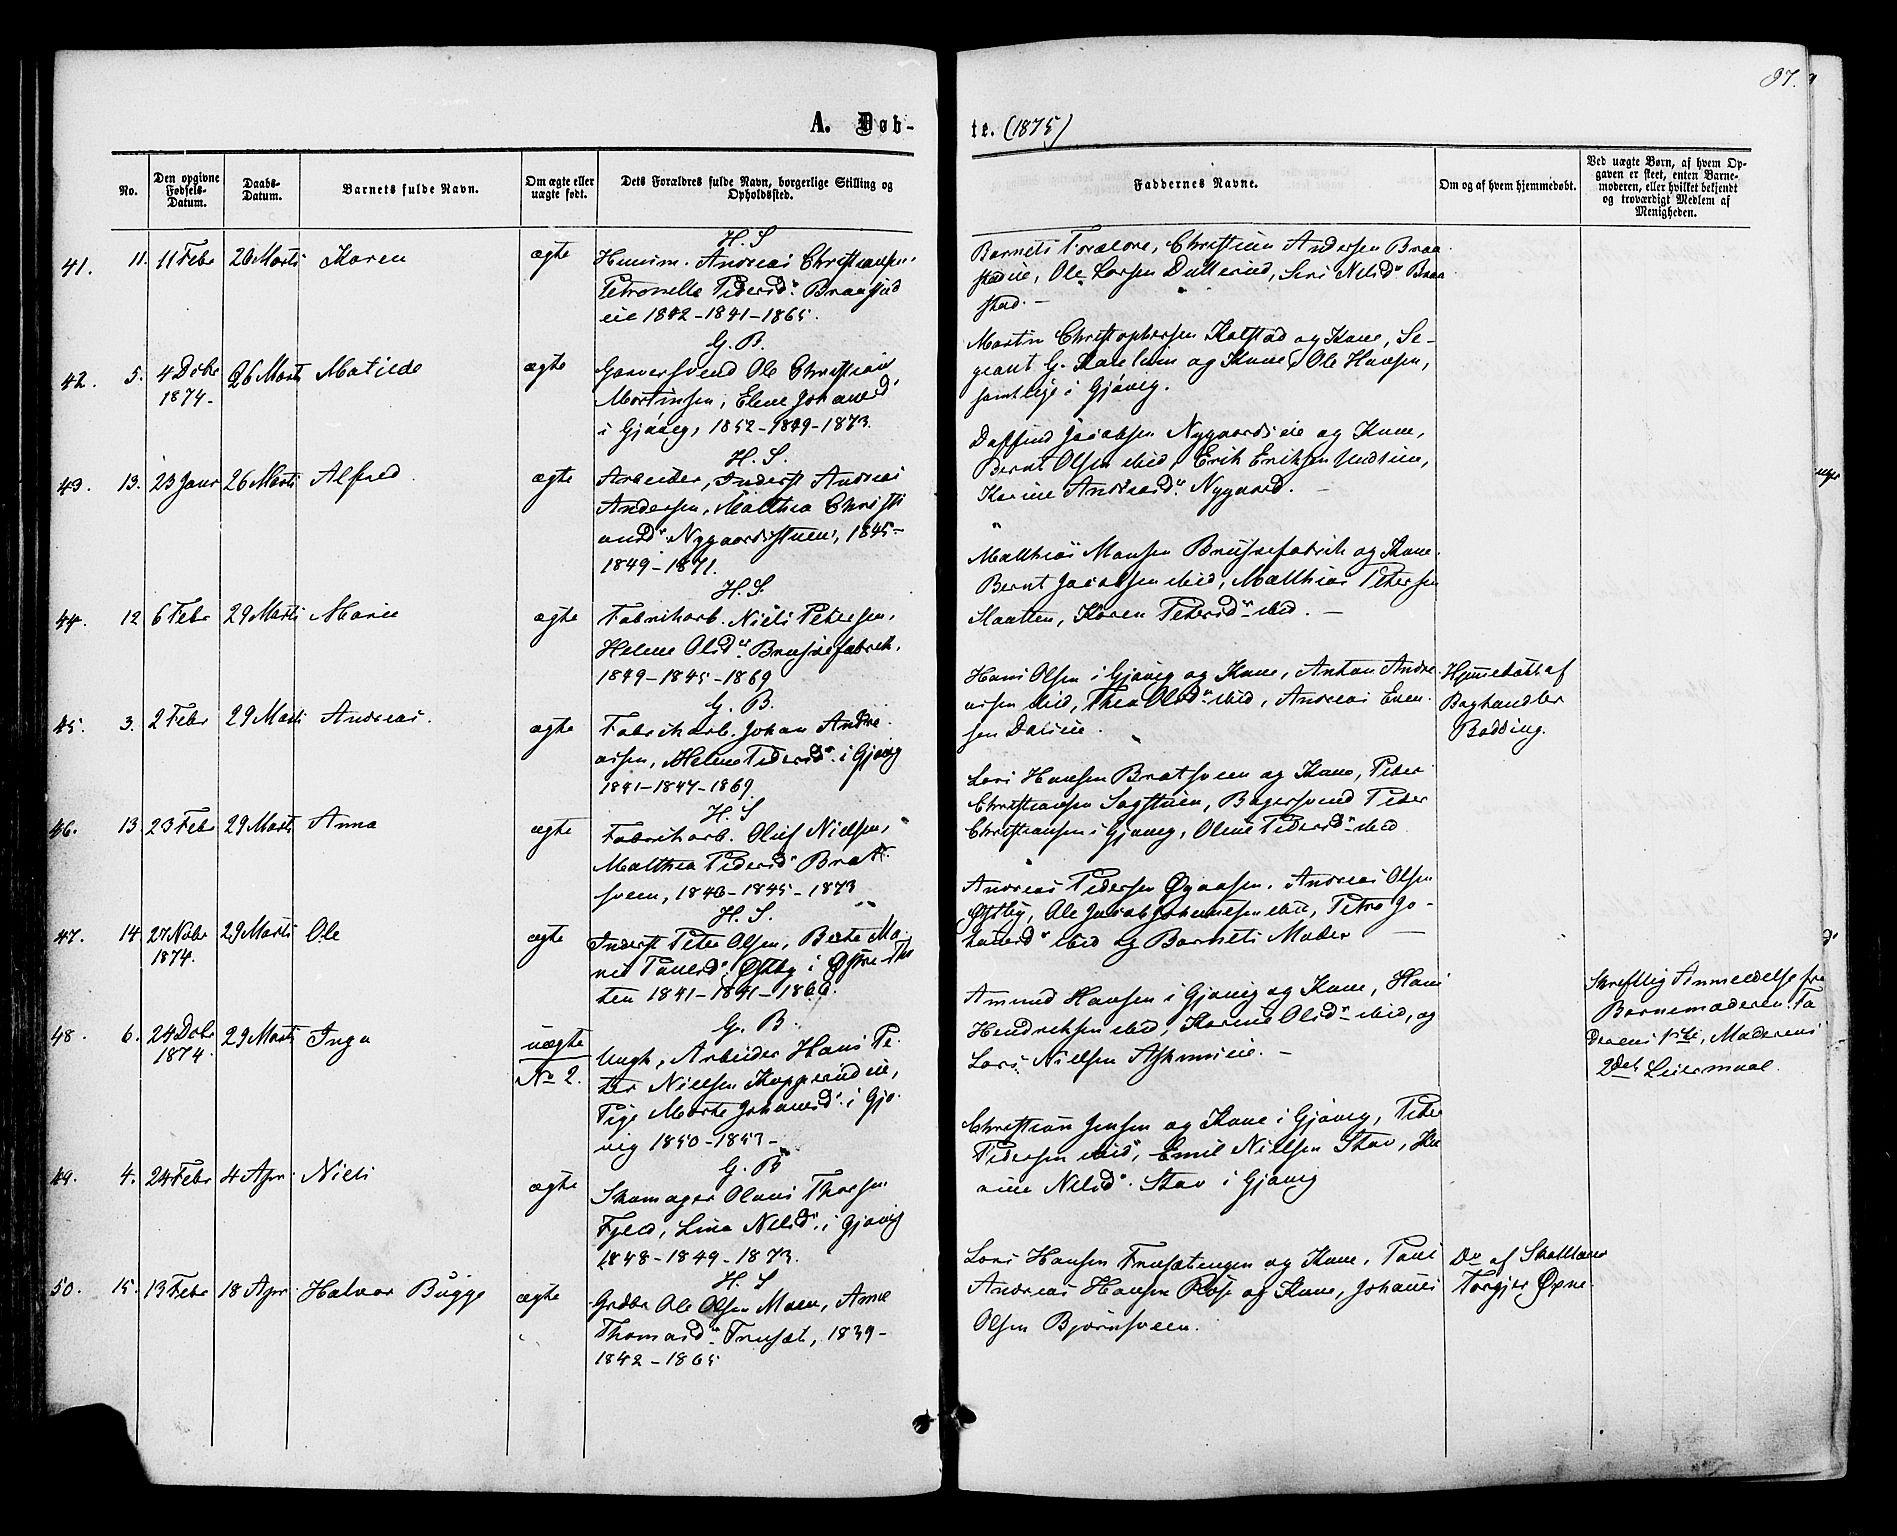 87.
A. Døb-
te. (1875)
No.
Den opgivne Fødsels-Datum.
Daabs-Datum.
Barnets fulde Navn.
Om ægte eller uægte født.
Dets Forældres fulde Navn, borgerlige Stilling og Opholdssted.
Faddernes Navne.
Om og af hvem hjemmedøbt.
Ved uægte Børn, af hvem Op-
gaven er skeet, enten Barne-
moderen, eller hvilket bekjendt
og troværdigt Medlem af
Menigheden.
41. 11. 11 Febr 26 Marts Karen ægte
H. S
Huusm. Andreas Christiansen,
Petronelle Pedersd. Braastad
eie 1842-1841-1865.
Barnets Forældre, Christian Andersen Braa
stadeie, Ole Larsen Dulterud, Siri Nilsd. Braa
stad.-
42. 5. 4 Dcbr 1874- 26 Marts Matilde ægte
G. B.
Garversvend Ole Christian
Martinsen, Elene Johansd.
i Gjøvig, 1852-1849-1873.
Martin Christophersen Kalstad og Kone, Se-
geant G. og Kone, Ole Hansen,
samtlige i Gjøvig.
43. 13. 23 Janr 26 Marts Alfred ægte
H. S.
Arbeider, Inderst Andreas
Andersen, Mathea Christi
ansd. Nygaardsstuen, 1845-
1849-1871.
Daffind Jacobsen Nygaardseie og Kone,
Bernt Olsen ibid, Erik Eriksen
Karine Andreasd. Nygaard. -
44. 12 6 Febr 29 Marts Marie ægte
H. S.
Fabrikarb. Niels Petersen,
Helene Olsd. Brusvefabrik,
1849-1845-1869
Matthias Hansen Brusvefabrik og Kone
Bernt Jacobsen ibid, Matthias Petersen
Maatten, Karen Petersd. ibid. -
45. 3. 2 Febr 29 Marts Andreas. ægte
G. B.
Fabrikarb. Johan Andre
assen, Helene Pedersd. i Gjøvig
1841-1847-1869.
Hans Olsen i Gjøvig og Kone, Anton Andre
assen ibid, Thea Olsd. ibid, Andreas Even
sen Dalseie.
Hjemmedøbt af
Boghandler
Bødding.
46. 13 23 Febr 29 Marts Anna ægte
H. S
Fabrikarb. Oluf Nielsen,
Matthea Pedersd. Brat
sveen, 1846-1845-1873
Lars Hansen Bratsveen og Kone, Peder
Christiansen Sagstuen, Bagersvend Peder
Christiansen i Gjøvig, Oline Pedersd. ibid
47. 14 27 Nvbr 1874. 29 Marts Ole ægte
H. S.
Inderst Peter Olsen, Berte Ma-
rie Paulsd. Østby i Østre Tho
ten 1841-1841-1866.
Andreas Pedersen Øgaasen, Andreas Olsen
Østby, Ole Jacob Johannesen ibid, Petra Jo-
hansd. ibid og Barnets Moder -
48. 6. 24 Dcbr 1874. 29 Marts Inga uægte No 2.
G. B.
Ungk, Arbeider Hans Pe
ter Nielsen Kopperudeie,
Pige Marte Johansd. i Gjø
vig 1850-1853-
Amund Hansen i Gjøvig og Kone, Hans
Hendriksen ibid, Karine Olsd. ibid, og
Lars Nielsen -
Skriftlig Anmeldelse fra
Barnemoderen. Fa
derens 1ste, Moderens
2det Leiermaal.
49. 4. 24 Febr 4 Apr Niels ægte
G. B
Skomager Olaus Thorsen
Fjeld, Lina Nilsd. i Gjøvig
1848-1849-1873.
Christian Jensen og Kone i Gjøvig, Peder
Pedersen ibid, Emil Nielsen Stav, Ka
rine Nilsd. Stav i Gjøvig
50. 15. 13 Febr 18 Apr Halvor Bugge ægte
H. S
Grdbr Ole Olsen Moen, Anne
Thomasd. Frusæt, 1839-
1842-1865
Lars Hansen Frusætengen og Kone, Paul
Andreas Hansen Røise og Kone, Johannes
Olsen Bjørnsveen.
Do af Skolelærer
Torgjer Øpne